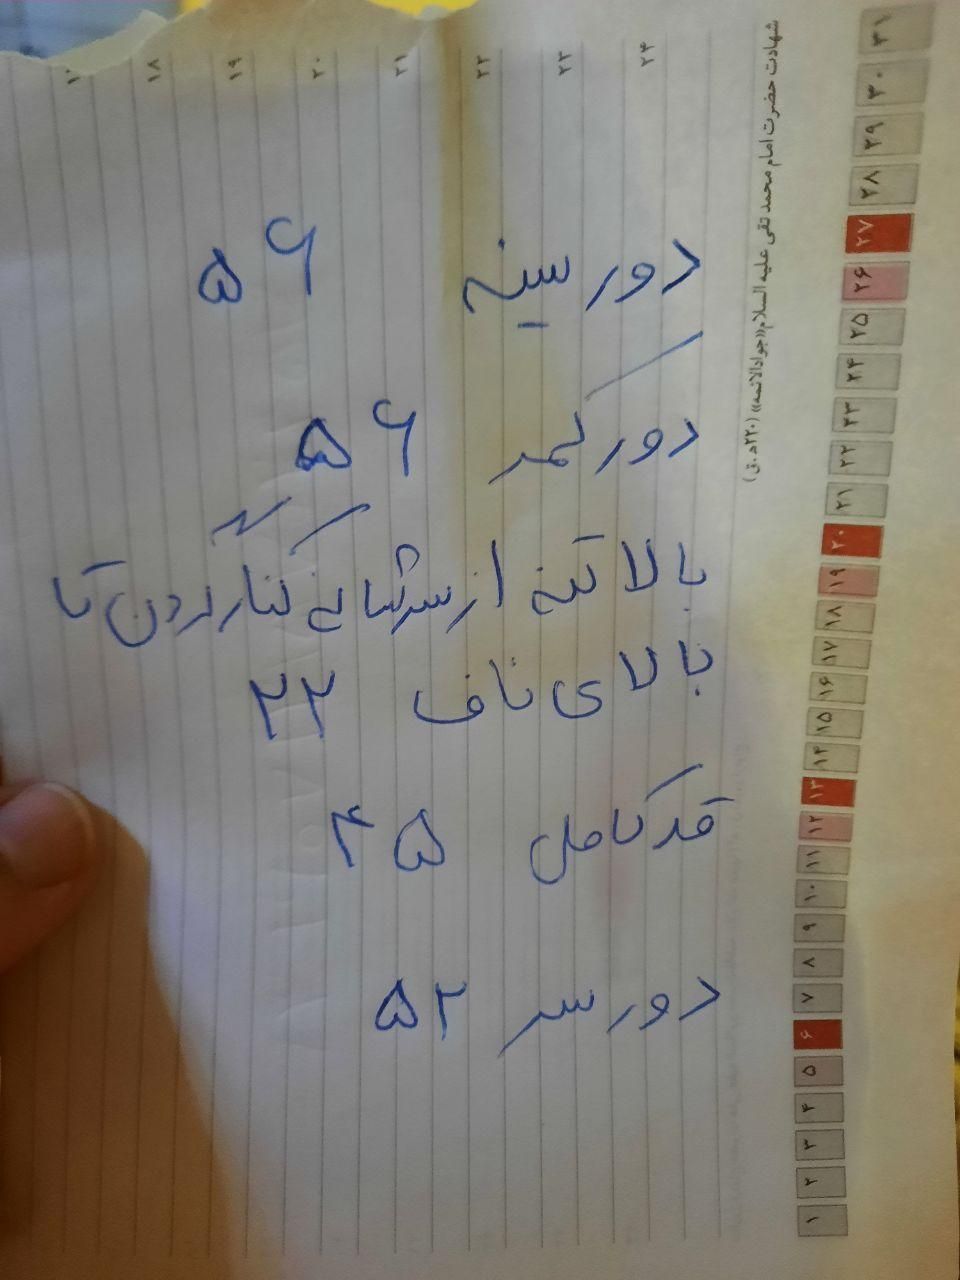 دور سینه ۵۶
دور کمر ۵۶
بالا تنه از سرشانه کنار گردن تا
بالای ناف ۲۲
قد کامل ۴۵
دور سر ۵۲
شهادت حضرت امام محمد تقی علیه السلام«جوادالائمه» (۲۲۰ه.ق)
۱۸ ۱۹ ۲۰ ۲۱ ۲۲ ۲۳ ۲۴
۱ ۲ ۳ ۴ ۵ ۶ ۷ ۸ ۹ ۱۰ ۱۱ ۱۲ ۱۳ ۱۴ ۱۵ ۱۶ ۱۷ ۱۸ ۱۹ ۲۰ ۲۱ ۲۲ ۲۳ ۲۴ ۲۵ ۲۶ ۲۷ ۲۸ ۲۹ ۳۰ ۳۱